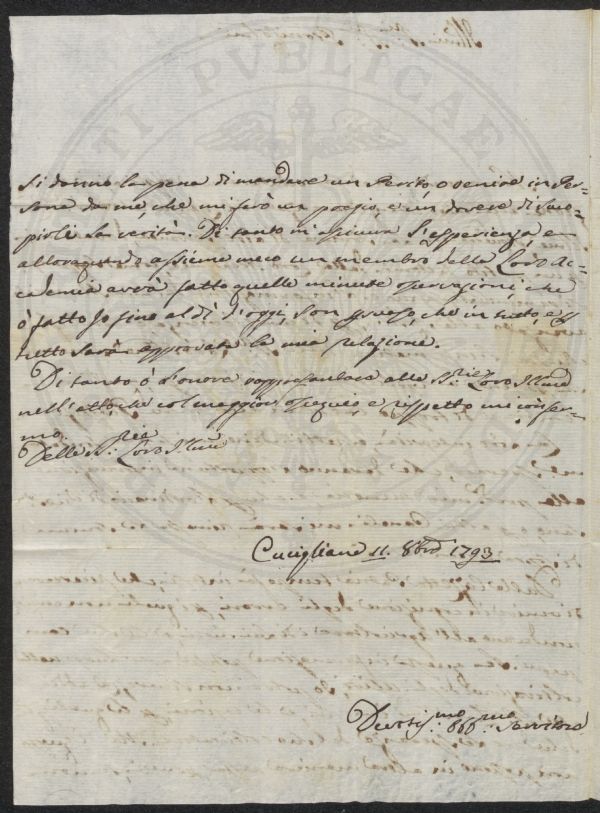 ATI PVBLICAE
si donno la pena di mandare un Perito, o venire in Per-
sona da me, che mi farò un pregio, e un dovere di
la verità. Di tanto m'assicura l'esperienza e
allora quando assieme meco un membro della Loro Ac-
cademia avrà fatto quelle minute osservazioni, che
ò fatto Jo fino al dì d'oggi, son che in tutto, e
tutto sarà approvata la mia relazione.
Di tanto ò l'onore rappresentare alle Loro
nell'atto, che col maggior ossequio, e rispetto mi confer-
mo.
Delle Loro
Cucigliana 11. 8bre 1793
Devotis.mo Obb.mo Servitore